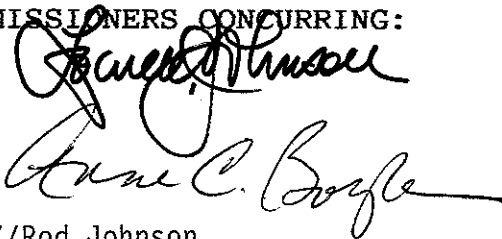 MISSIONERS CONCURRING:
Johnson
Anne C. Boyle
//Rod Johnson